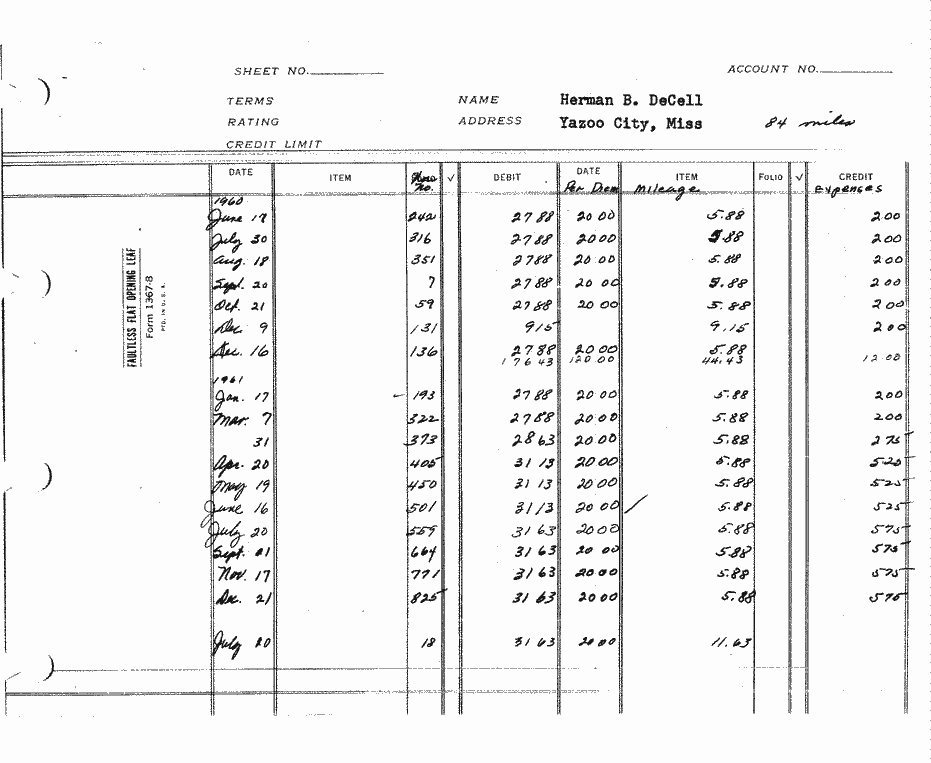 SHEET NO. ACCOUNT NO.
TERMS NAME Herman B. DeCell
RATING ADDRESS Yazoo City, Miss 84 miles
CREDIT LIMIT
DATE ITEM No. ✓ DEBIT DATE ITEM FOLIO ✓ CREDIT
Per Diem Mileage Expenses
1960
June 17 242 27 88 20 00 5.88 2 00
July 30 316 27 88 20 00 5.88 2 00
Aug. 18 351 27 88 20 00 5.88 2 00
Sept. 20 7 27 88 20 00 5.88 2 00
Oct. 21 59 27 88 20 00 5.88 2 00
Dec. 9 131 9 15 9.15 2 00
Dec. 16 136 27 88 20 00 5.88
176 43 120.00 44.43 12 00
1961
Jan. 17 193 27 88 20 00 5.88 2 00
Mar. 7 322 27 88 20 00 5.88 2 00
31 373 28 63 20 00 5.88 2 75
Apr. 20 405 31 13 20 00 5.88 5 25
May 19 450 31 13 20 00 5.88 5 25
June 16 501 31 13 20 00 5.88 5 25
July 20 559 31 63 20 00 5.88 5 75
Sept. 21 664 31 63 20 00 5.88 5 75
Nov. 17 771 31 63 20 00 5.88 5 75
Dec. 21 825 31 63 20 00 5.88 5 75
July 20 18 31 63 20 00 11.63
FAULTLESS FLAT OPENING LEAF
Form 1367-8
PTD. IN U. S. A.